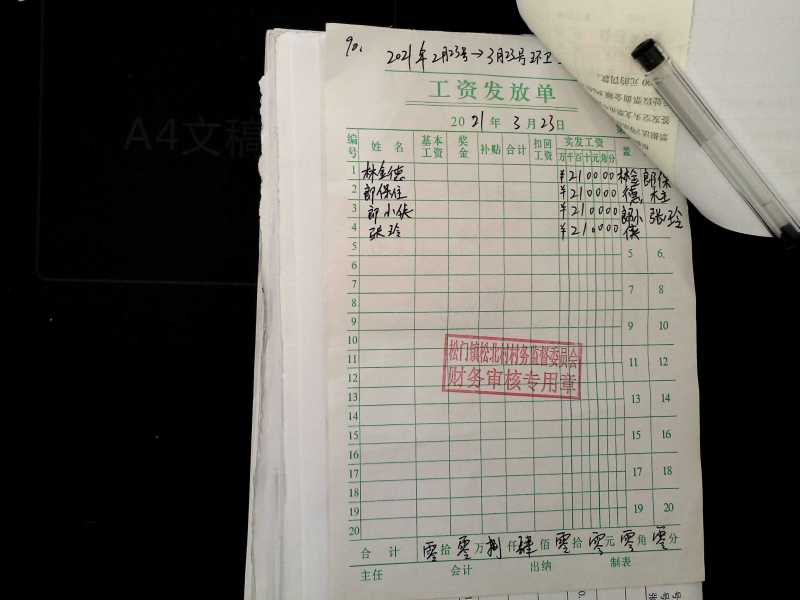 90.
2021年2月23号→3月23号环卫
工资发放单
2021年3月23日
编号 姓名 基本工资 奖金 补贴 合计 扣回工资 实发工资 盖
万千百十元角分
1 林金德 ¥210000 林金德 郎保
2 郎保住 ¥210000
3 郎小伕 ¥210000 郎小伕 张玲
4 张玲 ¥210000
5 5 6.
6
7 7 8
8
9 9 10
10
11 11 12
12
13 13 14
14
15 15 16
16
17 17 18
18
19 19 20
20
松门镇松北村村务监督委员会
财务审核专用章
合计 零拾零万捌仟肆佰零拾零元零角零分
主任 会计 出纳 制表
A4文稿